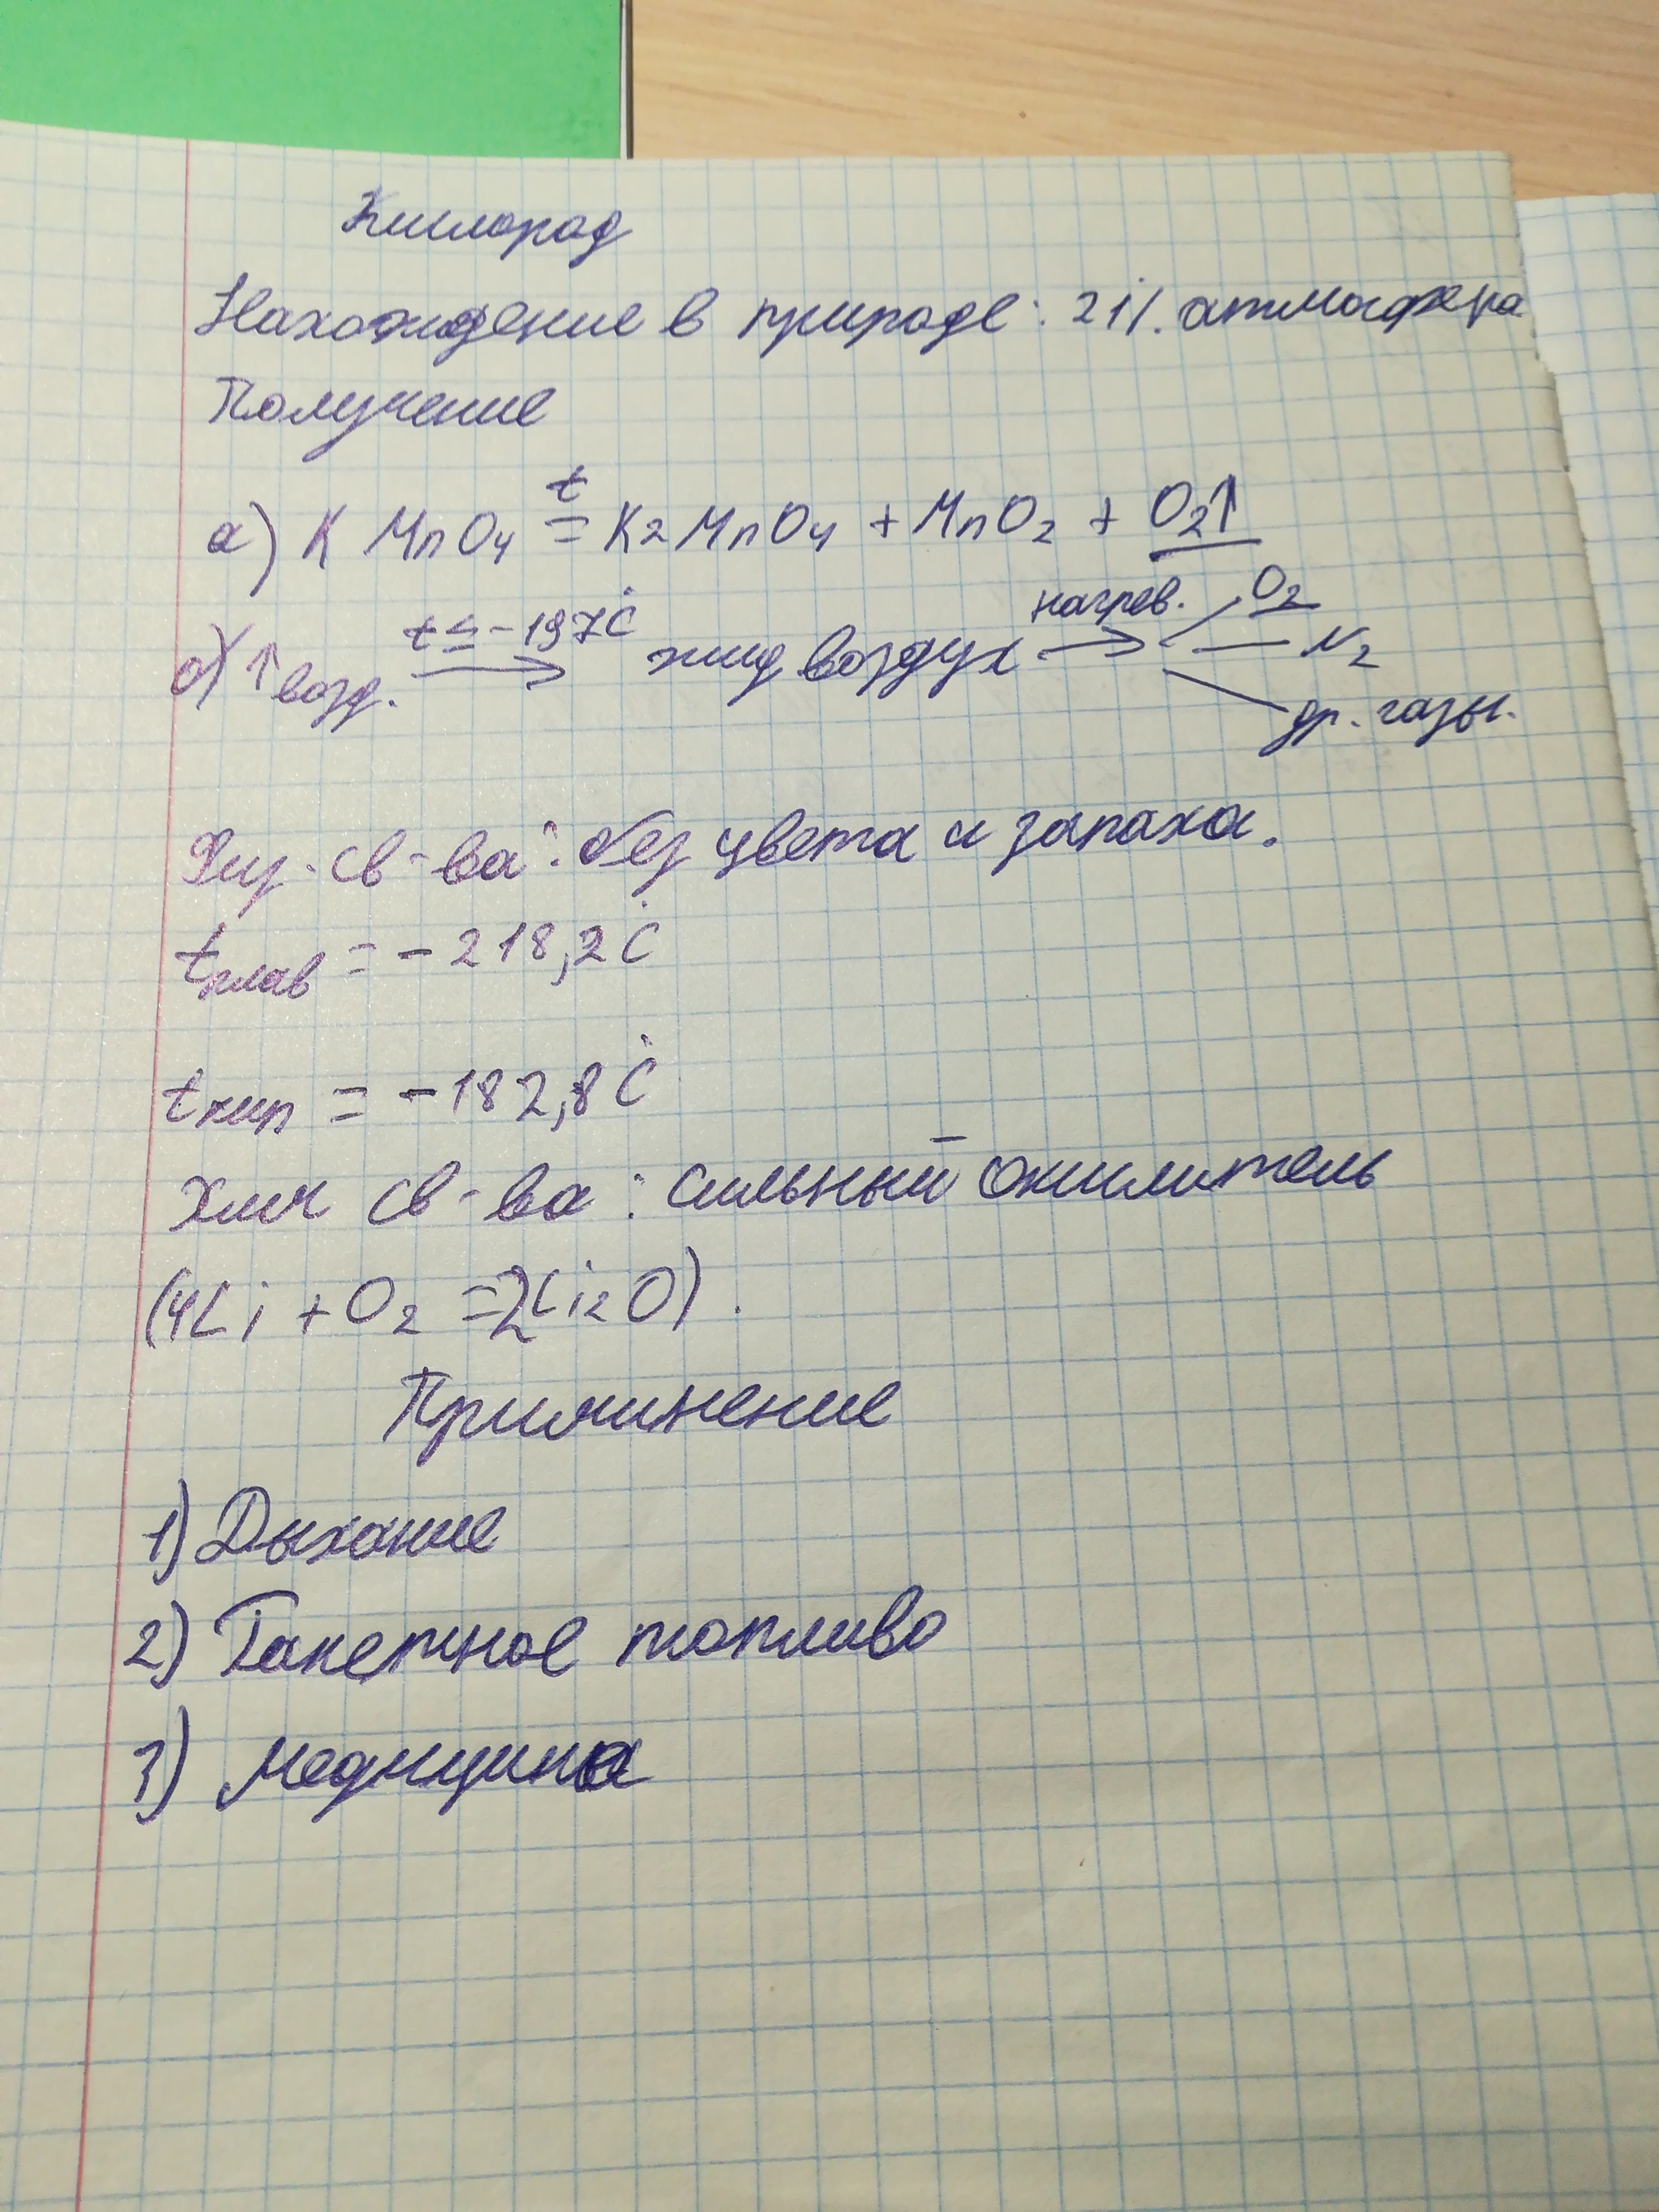 Кислород
Нахождение в природе: 21% атмосфера
Получение
а) KMnO4 t= K2MnO4 + MnO2 + O2↑
б) ↑возд. t≤-197°C → жид воздух нагрев. → O2
N2
др. газы.
Физ. св-ва: без цвета и запаха.
tплав = -218,2°C
tкип = -182,8°C
Хим св-ва: сильный окислитель
(4Li + O2 = 2Li2O).
Приминение
1) Дыхание
2) Ракетное топливо
3) медицина